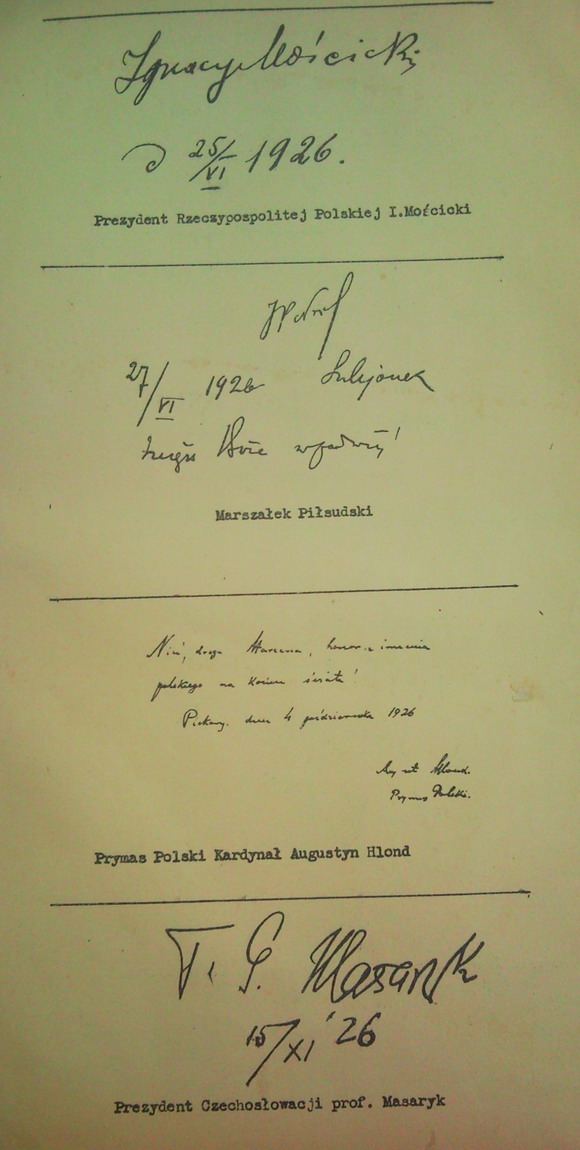 Ignacy Mościcki
d 25/VI 1926.
Prezydent Rzeczypospolitej Polskiej I.Mościcki
27/VI 1926
Boże
Marszałek Piłsudski
Nieś, droga Marzenna, honor i imienia
polskiego na koniec świata!
Piekary. dnia 4 października 1926
August Hlond.
Prymas Polski.
Prymas Polski Kardynał Augustyn Hlond
T. G. Masaryk
15/XI 26
Prezydent Czechosłowacji prof. Masaryk